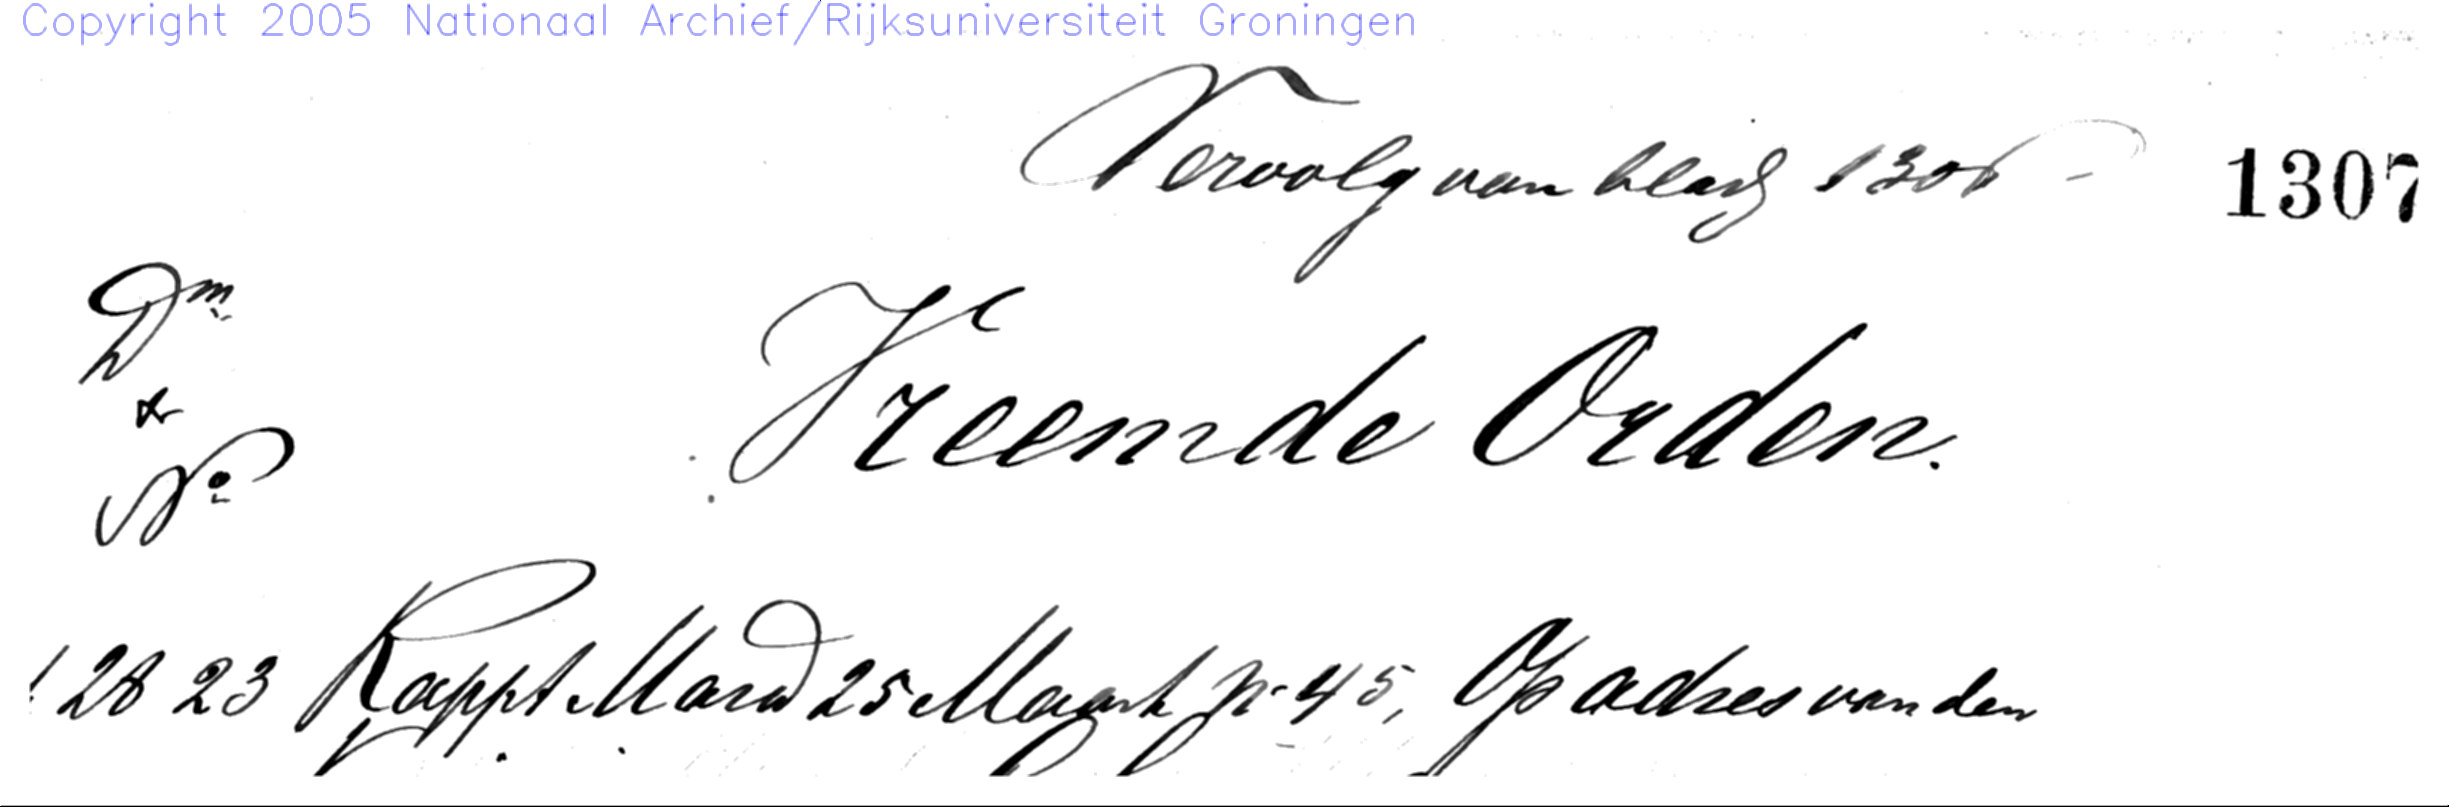 Copyright 2005 Nationaal Archief/Rijksuniversiteit Groningen
Vervolg van bladz 1306 -
1307
Dm
&
No
Vreemde Orden.
28 23 Rappt. Mard 25 Maart no 45, Op adres van den